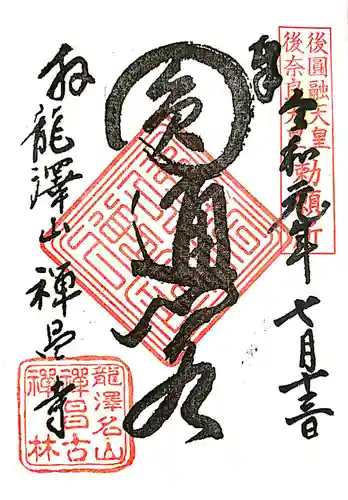 後圓融天皇
後奈良天皇勅願所
奉
令和元年七月十三日
圓通閣
拝
龍澤山
禅昌寺
龍澤名山
禪昌古
禪林